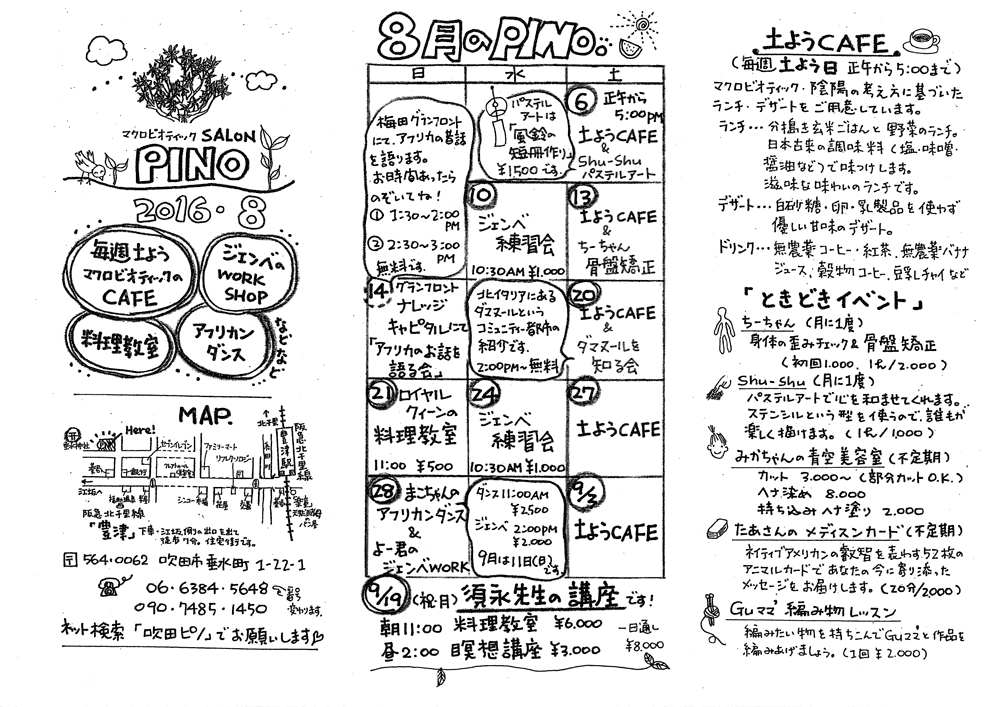 マクロビオティック SALON
PINO
2016・8
毎週土よう
マクロビオティックの
CAFE
ジェンベの
WORK
SHOP
料理教室
アフリカン
ダンス
などなど
MAP.
Here!
セブンイレブン
ファミリーマート
リフレクソロジー
北千里
豊津駅
阪急北千里線
江坂
阪急北千里線
「豊津」下車・江坂側の出口を出て
徒歩7分。住宅街です。
〒564・0062 吹田市垂水町1-22-1
☎ 06・6384・5648
090・7485・1450
変わります。
ネット検索「吹田ピノ」でお願いします
8月のPINO。
日 水 土
梅田グランフロント
にて、アフリカの昔話
を語ります。
お時間あったら
のぞいてね!
① 1:30〜2:00
PM
② 2:30〜3:00
PM
無料です。
パステル
アートは
「風鈴の
短冊作り」
¥1500です。
6 正午から
5:00PM
土ようCAFE
&
Shu-Shu
パステルアート
10
ジェンベ
練習会
10:30AM ¥1,000
13
土ようCAFE
&
ちーちゃん
骨盤矯正
14 グランフロント
ナレッジ
キャピタルにて
「アフリカのお話を
語る会」
北イタリアにある
ダマヌールという
コミュニティー都市の
紹介です。
2:00PM〜無料
20
土ようCAFE
&
ダマヌールを
知る会
21 ロイヤル
クィーンの
料理教室
11:00 ¥500
24
ジェンベ
練習会
10:30AM ¥1,000
27
土ようCAFE
28 まこちゃんの
アフリカダンス
&
よー君の
ジェンベWORK
ダンス11:00AM
¥2500
ジェンベ 2:00PM
¥2.000
9月は11日(日)
です。
9/3
土ようCAFE
9/19 (祝・月) 須永先生の講座です!
朝11:00 料理教室 ¥6,000 一日通し
昼2:00 瞑想講座 ¥3,000 ¥8,000
土ようCAFE
(毎週 土よう日 正午から5:00まで)
マクロビオティック・陰陽の考え方に基づいた
ランチ・デザートをご用意しています。
ランチ…分搗き玄米ごはんと野菜のランチ。
日本古来の調味料(塩・味噌・
醤油など)で味つけします。
滋味な味わいのランチです。
デザート…白砂糖・卵・乳製品を使わず
優しい甘味のデザート。
ドリンク…無農薬コーヒー・紅茶、無農薬バナナ
ジュース、穀物コーヒー、豆乳チャイなど
「ときどきイベント」
ちーちゃん (月に1度)
身体の歪みチェック&骨盤矯正
(初回1.000. 1代/2.000)
Shu-Shu (月に1度)
パステルアートで心を和ませてくれます。
ステンシルという型を使うので、誰もが
楽しく描けます。(1代/1,000)
みかちゃんの青空美容室(不定期)
カット 3.000〜(部分カットO.K.)
ヘナ染め 8.000
持ち込みヘナ塗り 2.000
たあさんの メディスンカード(不定期)
ネイティブアメリカンの叡智を表わす52枚の
アニマルカードであなたの今に寄り添った
メッセージをお届けします。(20分/2000)
Guママ 編み物レッスン
編みたい物を持ちこんでGuママと作品を
編みあげましょう。(1回¥2.000)